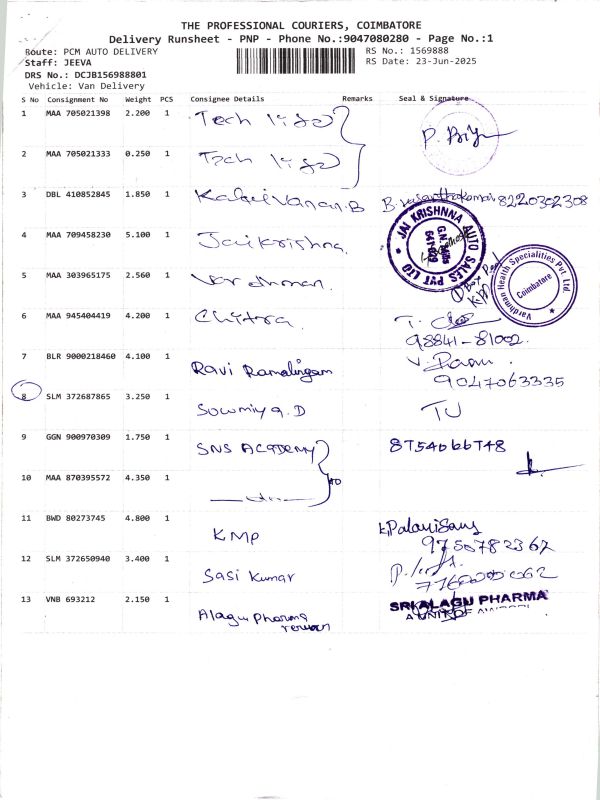 THE PROFESSIONAL COURIERS, COIMBATORE
Delivery Runsheet - PNP - Phone No.:9047080280 - Page No.:1
Route: PCM AUTO DELIVERY RS No.: 1569888
Staff: JEEVA RS Date: 23-Jun-2025
DRS No.: DCJB156988801
Vehicle: Van Delivery
S No Consignment No Weight PCS Consignee Details Remarks Seal & Signature
1 MAA 705021398 2.200 1 Tech
2 MAA 705021333 0.250 1 Tech
3 DBL 410852845 1.850 1 Kalaivanan.B 8220302308
4 MAA 709458230 5.100 1 Jaikrishna.
JAI KRISHNNA AUTO SALES PVT LTD
5 MAA 303965175 2.560 1 Vardhman.
Vardhman Health Specialities Pvt. Ltd.
Coimbatore
6 MAA 945404419 4.200 1 Chitra.
98841-81002.
7 BLR 9000218460 4.100 1 Ravi Ramalingam
9047063335
8 SLM 372687865 3.250 1 Sowmiya.D TJ
9 GGN 900970309 1.750 1 SNS ACADEMY
10 MAA 870395572 4.350 1
11 BWD 80273745 4.800 1 KMP
12 SLM 372650940 3.400 1 Sasi Kumar
13 VNB 693212 2.150 1 Alagu Pharma
SRI ALAGU PHARMA
A UNIT OF